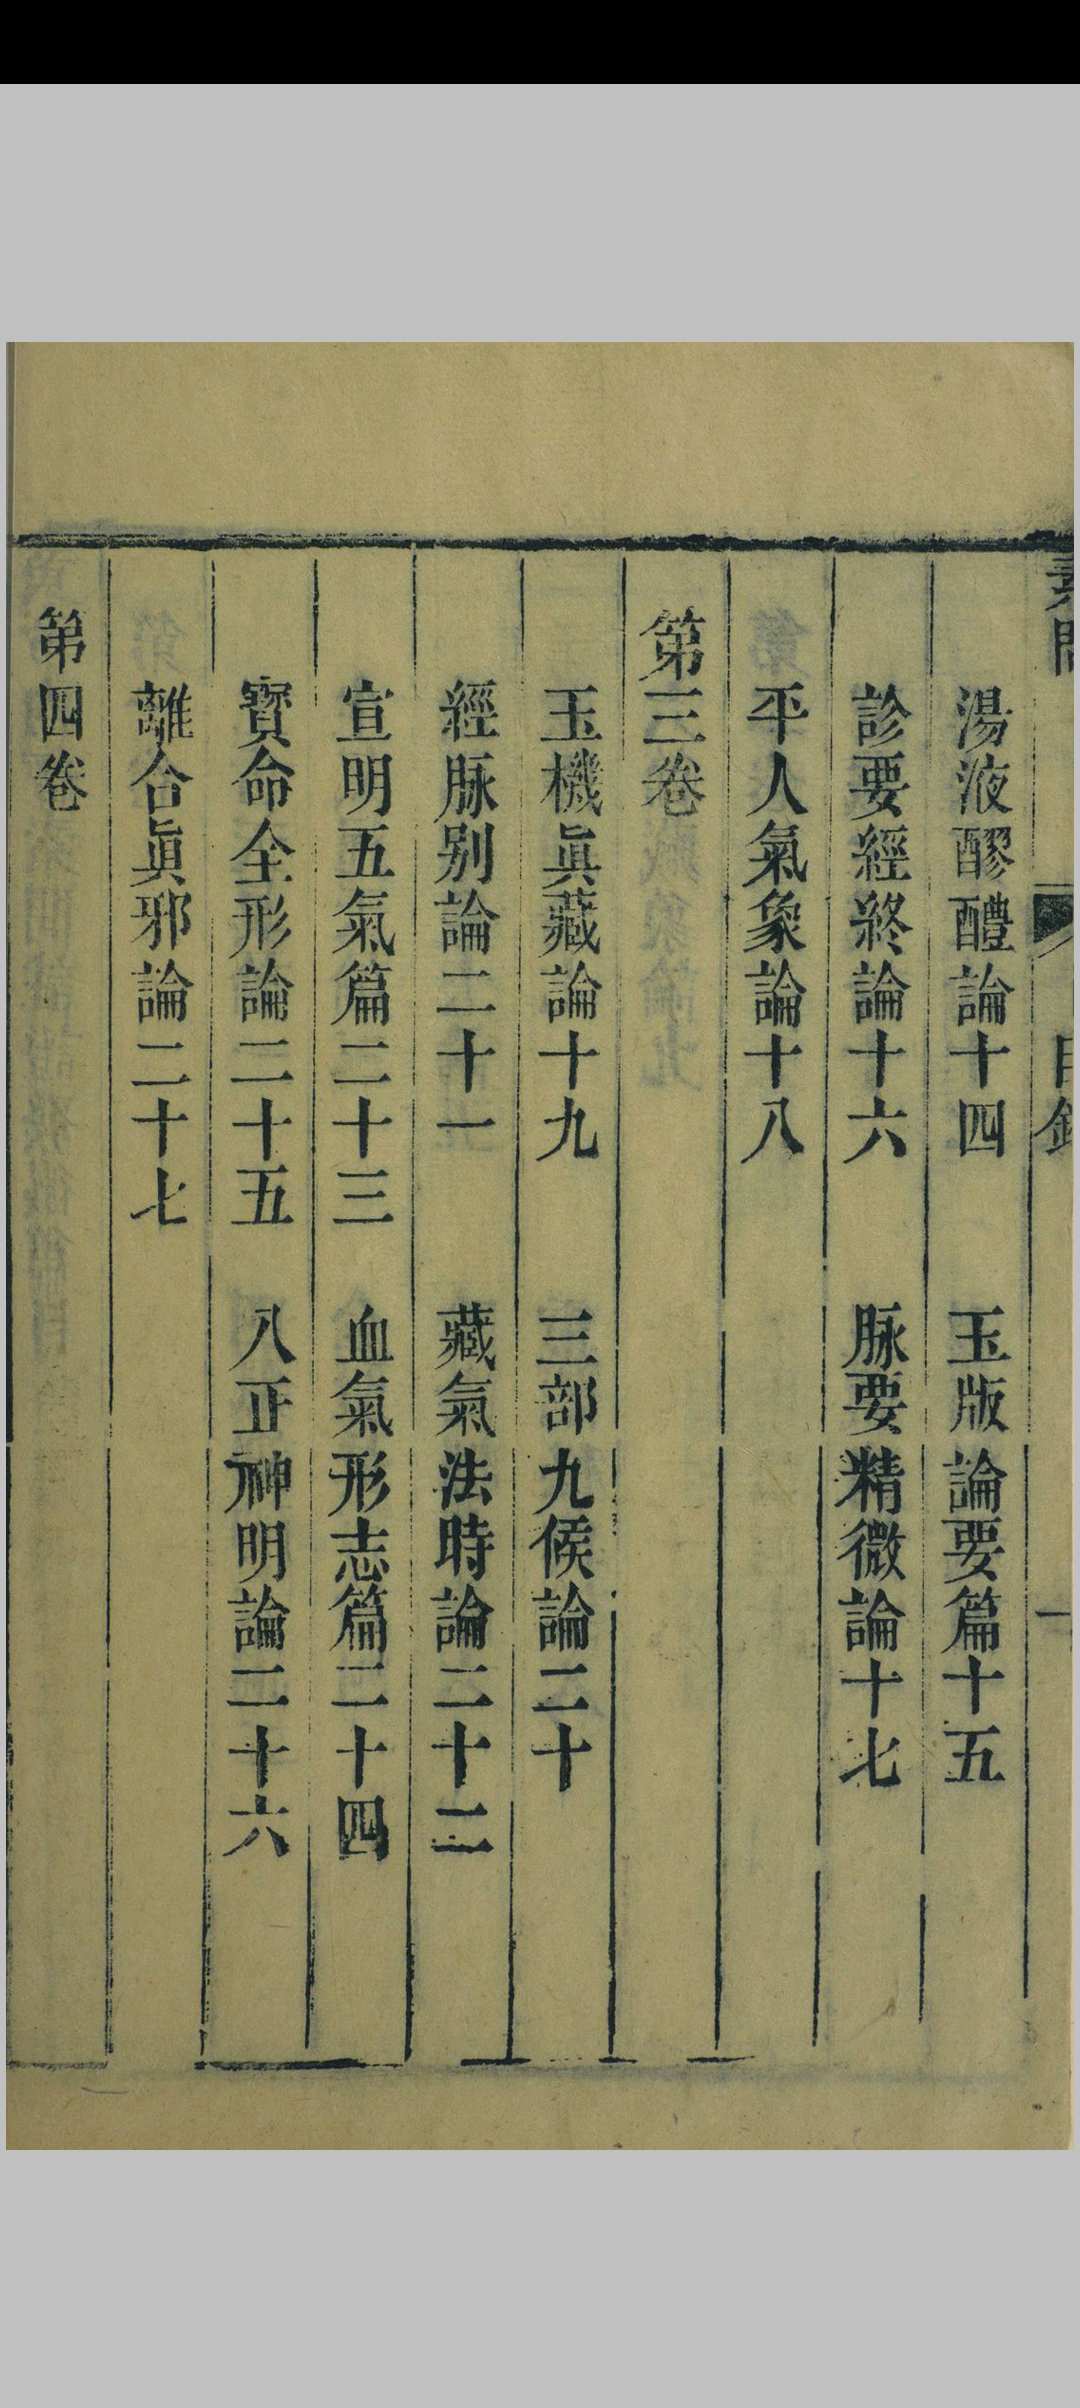 素問
目錄
一
湯液醪醴論十四 玉版論要篇十五
診要經終論十六 脉要精微論十七
平人氣象論十八
第三卷
玉機眞藏論十九 三部九候論二十
經脉别論二十一 藏氣法時論二十二
宣明五氣篇二十三 血氣形志篇二十四
寳命全形論二十五 八正神明論二十六
離合眞邪論二十七
第四卷